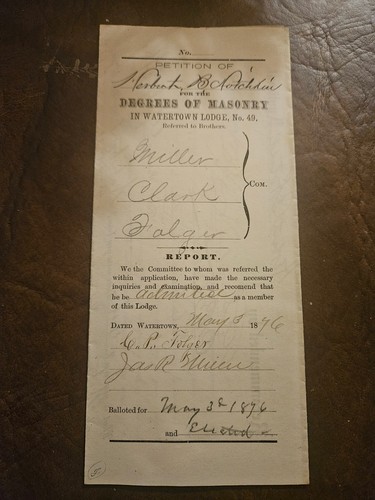 No.
PETITION OF
Herbert
FOR THE
DEGREES OF MASONRY
IN WATERTOWN LODGE, No. 49,
Referred to Brothers
Miller
Clark
Folger
COM.
REPORT.
We the Committee to whom was referred the
within application, have made the necessary
inquiries and examination, and recomend that
he be admitted as a member
of this Lodge.
DATED WATERTOWN, May 3 1876
C. P. Folger
Jas R Miller
Balloted for May 3d 1876
and Elected